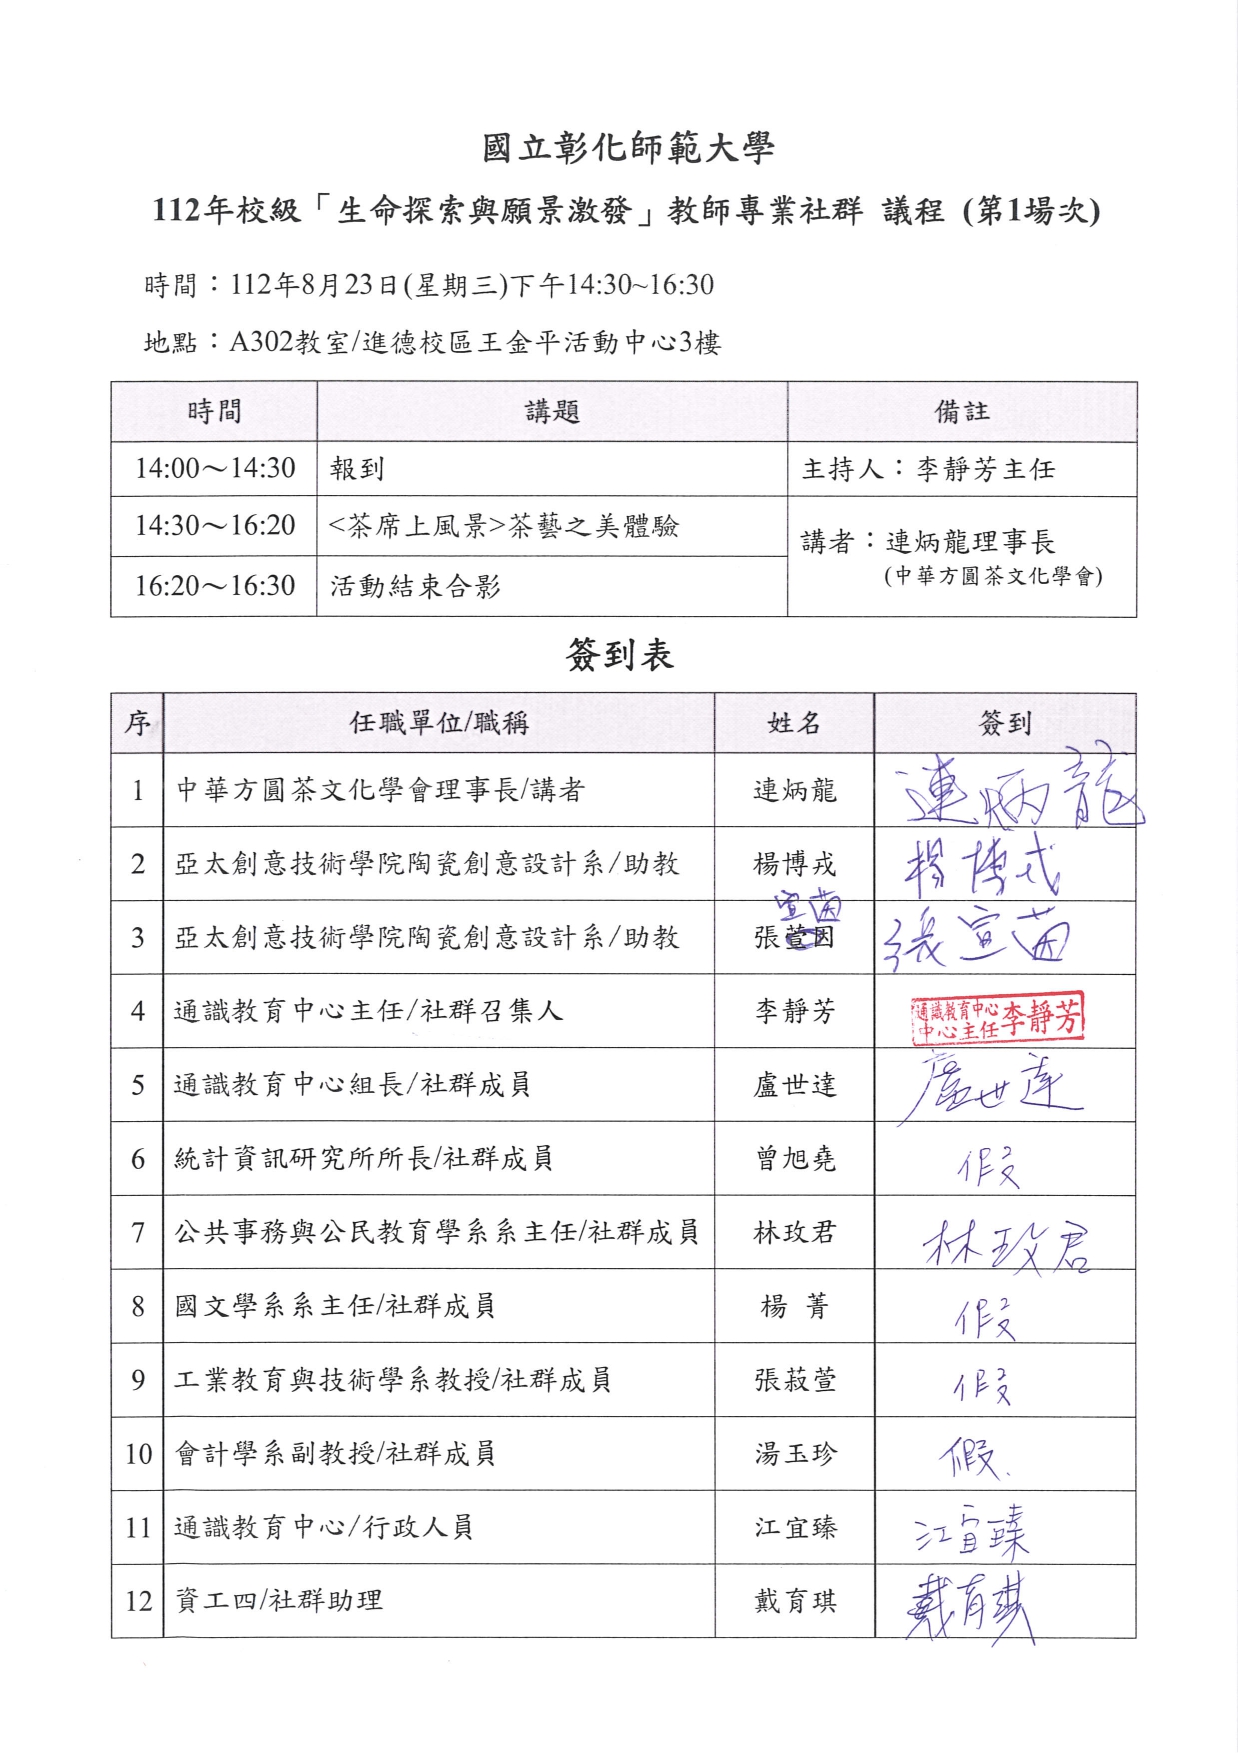 國立彰化師範大學
112年校級「生命探索與願景激發」教師專業社群 議程 (第1場次)
時間：112年8月23日(星期三)下午14:30~16:30
地點：A302教室/進德校區王金平活動中心3樓
時間 講題 備註
14:00～14:30 報到 主持人：李靜芳主任
14:30～16:20 <茶席上風景>茶藝之美體驗 講者：連炳龍理事長
(中華方圓茶文化學會)
16:20～16:30 活動結束合影
簽到表
序 任職單位/職稱 姓名 簽到
1 中華方圓茶文化學會理事長/講者 連炳龍 連炳龍
2 亞太創意技術學院陶瓷創意設計系/助教 楊博戎 楊博戎
宣茵
3 亞太創意技術學院陶瓷創意設計系/助教 張萱因 張宣茵
4 通識教育中心主任/社群召集人 李靜芳 通識教育中心中心主任李靜芳
5 通識教育中心組長/社群成員 盧世達 盧世達
6 統計資訊研究所所長/社群成員 曾旭堯 假
7 公共事務與公民教育學系系主任/社群成員 林玫君 林玫君
8 國文學系系主任/社群成員 楊 菁 假
9 工業教育與技術學系教授/社群成員 張菽萱 假
10 會計學系副教授/社群成員 湯玉珍 假
11 通識教育中心/行政人員 江宜臻 江宜臻
12 資工四/社群助理 戴育琪 戴育琪